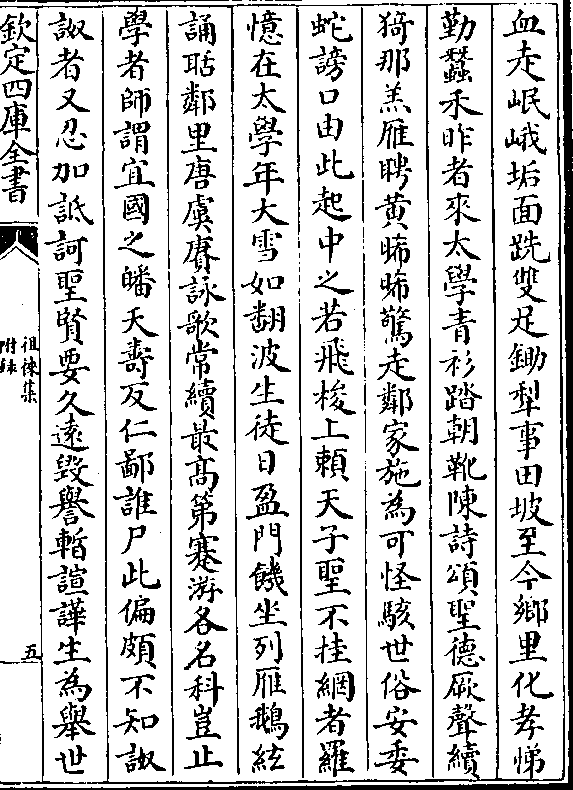 血走岷峨垢面跣雙足鋤犁事田坡至今鄉里化孝悌
勤蠶禾昨者來太學青衫踏朝靴陳詩頌聖德厥聲續
猗那羔雁聘黃晞晞驚走鄰家施為可怪駭世俗安委
蛇謗口由此起中之若飛梭上賴天子聖不挂網者羅
憶在太學年大雪如翻波生徒日盈門饑坐列雁鵝絃
誦聒鄰里唐虞賡詠歌常續最高第騫游各名科豈止
學者師謂宜國之皤夭壽反仁鄙誰尸此偏頗不知詉
詉者又忍加詆訶聖賢要久遠毀譽暫諠譁生為舉世
欽定四庫全書
徂徠集
附錄
五